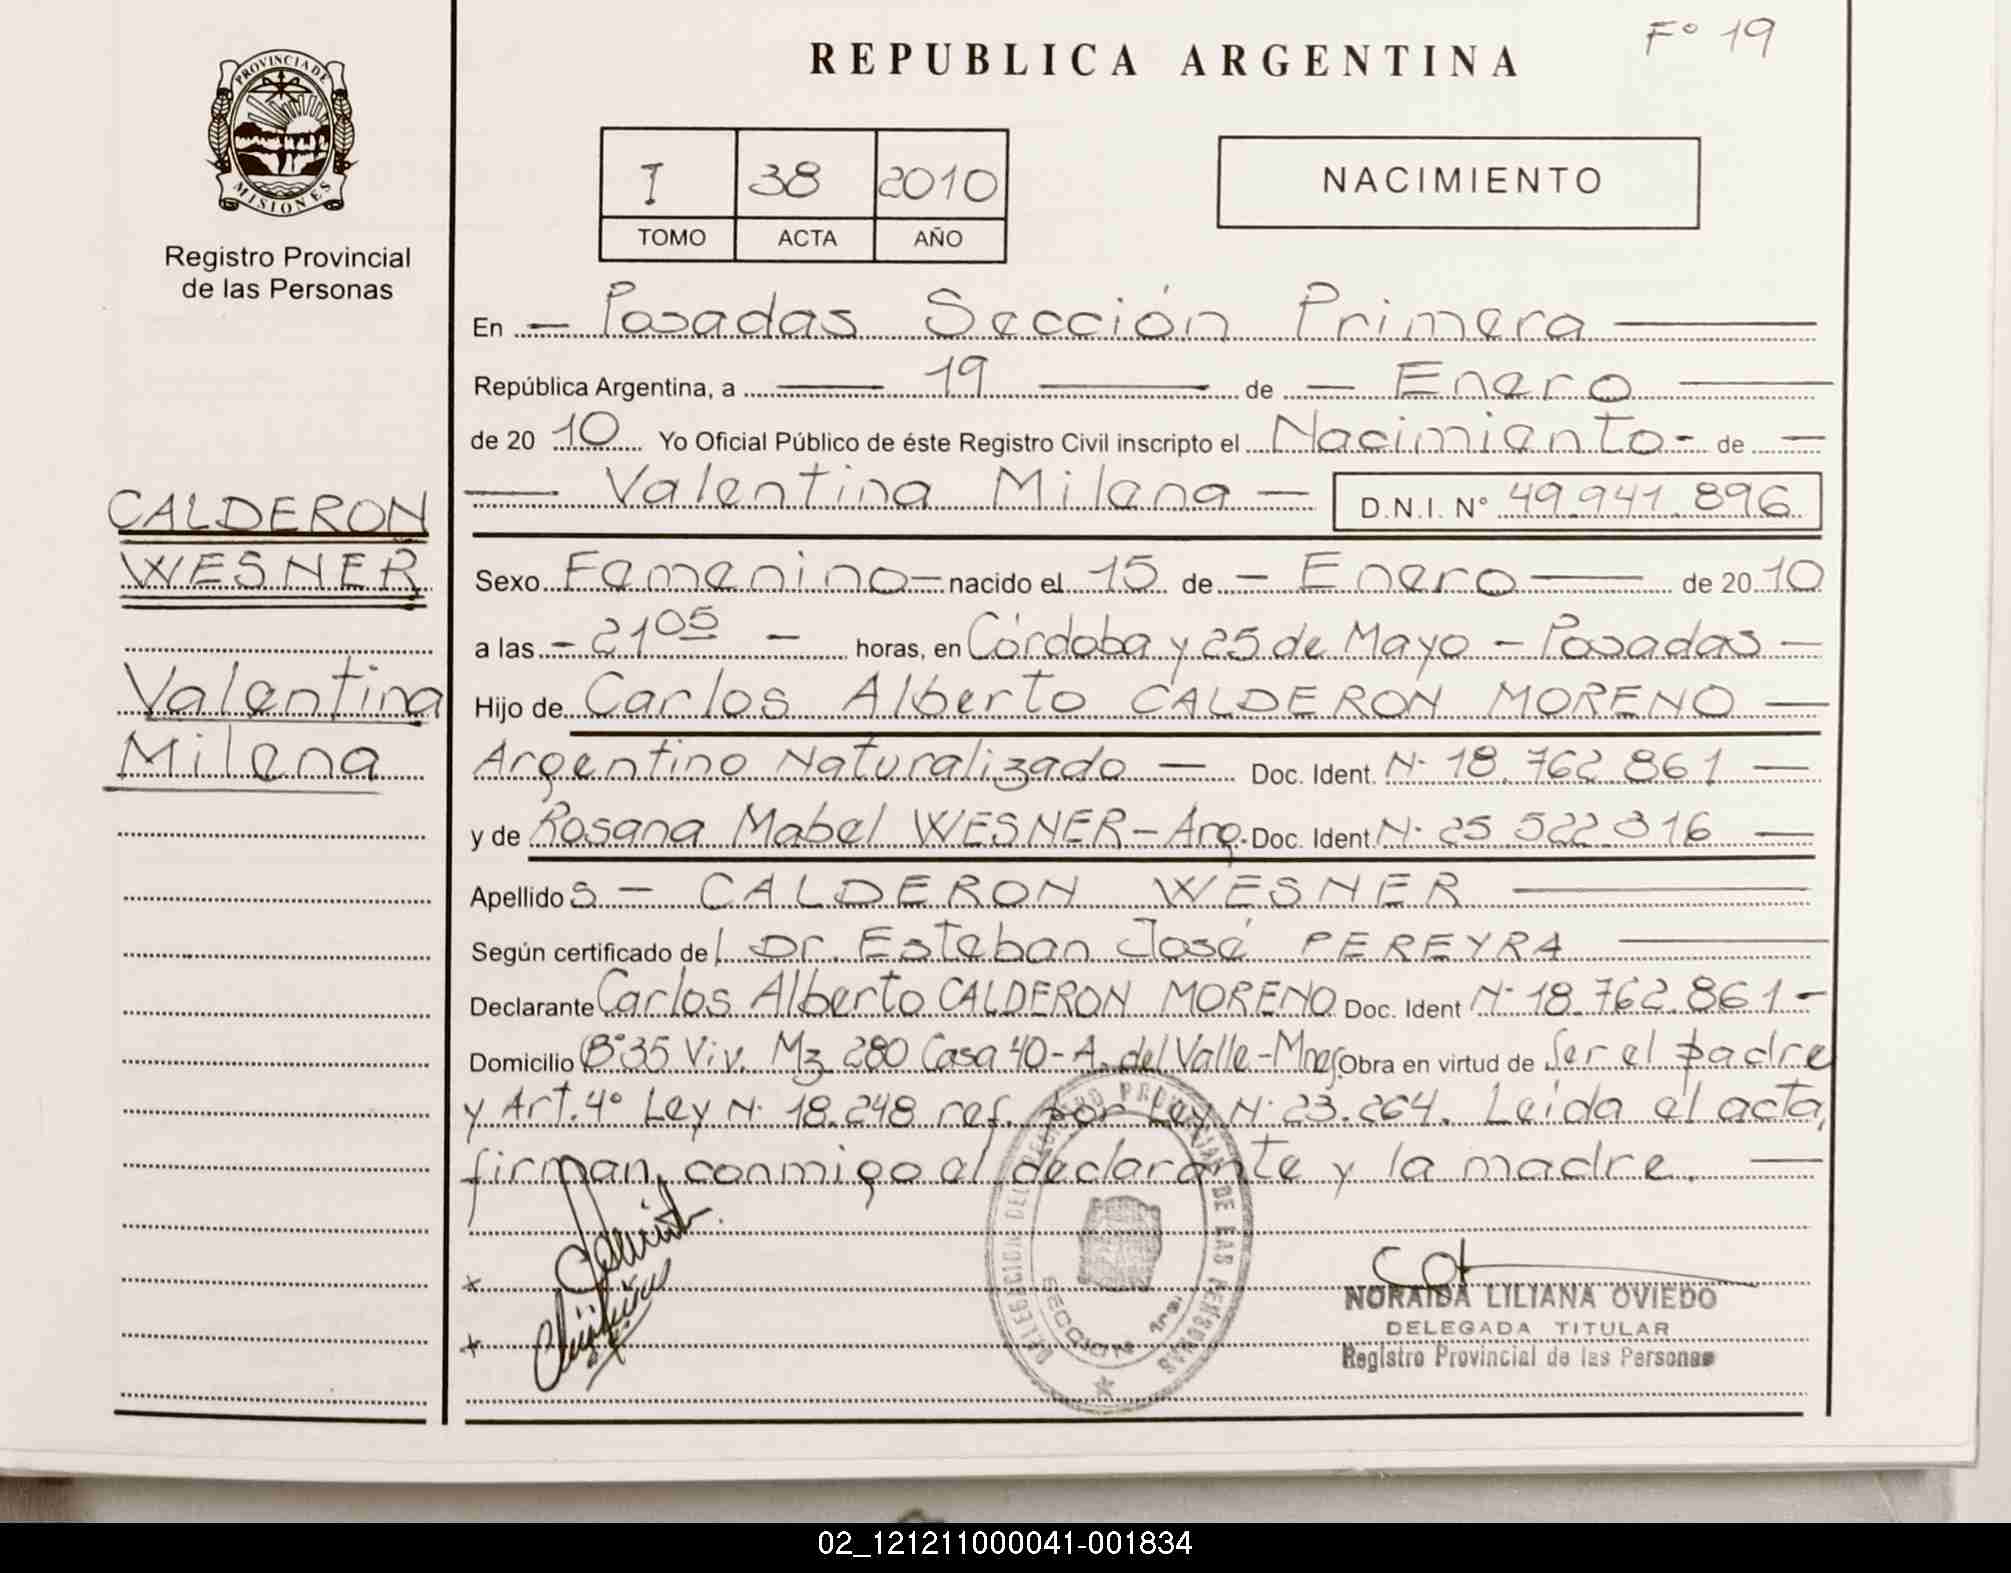 Fº 19
REPUBLICA ARGENTINA
PROVINCIA DE
MISIONES
Registro Provincial
de las Personas
I 38 2010
TOMO ACTA AÑO
NACIMIENTO
En — Posadas Sección Primera —
República Argentina, a — 19 — de — Enero —
de 20 10 Yo Oficial Público de éste Registro Civil inscripto el Nacimiento - de —
— Valentina Milena — D.N.I. N° 49.941.896
CALDERON
WESNER
Valentina
Milena
Sexo Femenino — nacido el 15 de — Enero — de 20 10
a las - 21 05 — horas, en Córdoba y 25 de Mayo - Posadas —
Hijo de Carlos Alberto CALDERON MORENO —
Argentino Naturalizado — Doc. Ident. N· 18.762.861 —
y de Rosana Mabel WESNER - Arg. Doc. Ident N· 25.522.316 —
Apellido s — CALDERON WESNER —
Según certificado de l Dr. Esteban José PEREYRA —
Declarante Carlos Alberto CALDERON MORENO Doc. Ident N· 18.762.861 -
Domicilio Bº 35 Viv. Mz 280 Casa 40 - A. del Valle - Mnes. Obra en virtud de Ser el padre
y Art. 4° Ley N· 18.248 ref. por Ley N· 23.264. Leida el acta,
firman conmigo el declarante y la madre. —
DELEGACION DEL REGISTRO PROVINCIAL DE LAS PERSONAS
SECCION 1ra.
NORAIDA LILIANA OVIEDO
DELEGADA TITULAR
Registro Provincial de las Personas
02_121211000041-001834